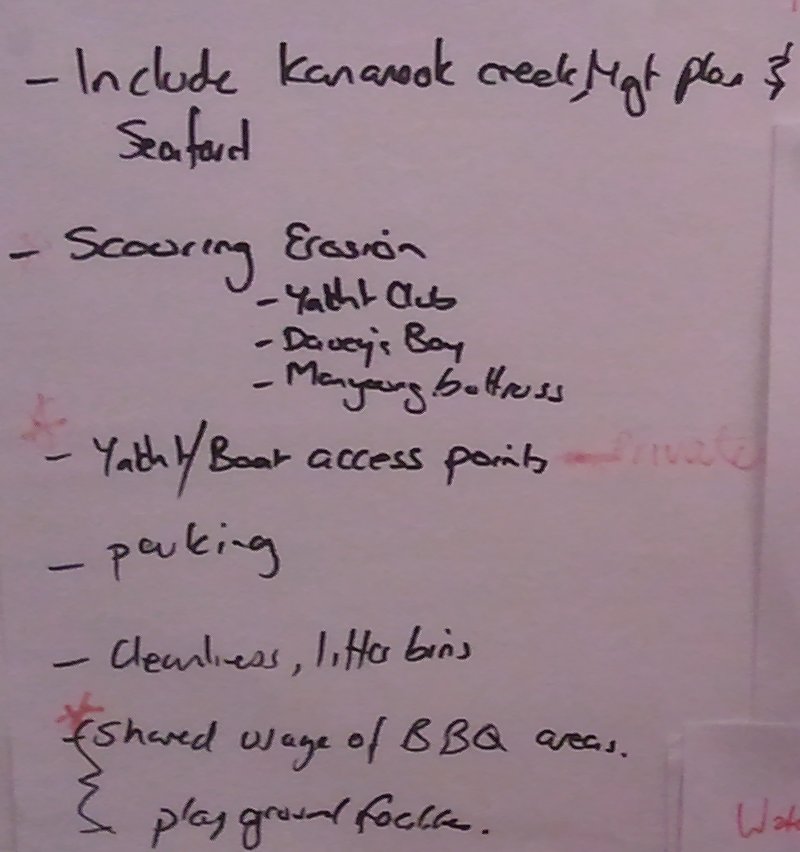 - Include Kananook creek, Mgt plan &
Seaford
- Scouring Erosion
- Yacht Club
- Davey's Bay
- Manyung buttruss
- Yacht/Boat access points - Private
- parking
- Cleanliness, litter bins
* { Shared usage of BBQ areas.
playground
Wat